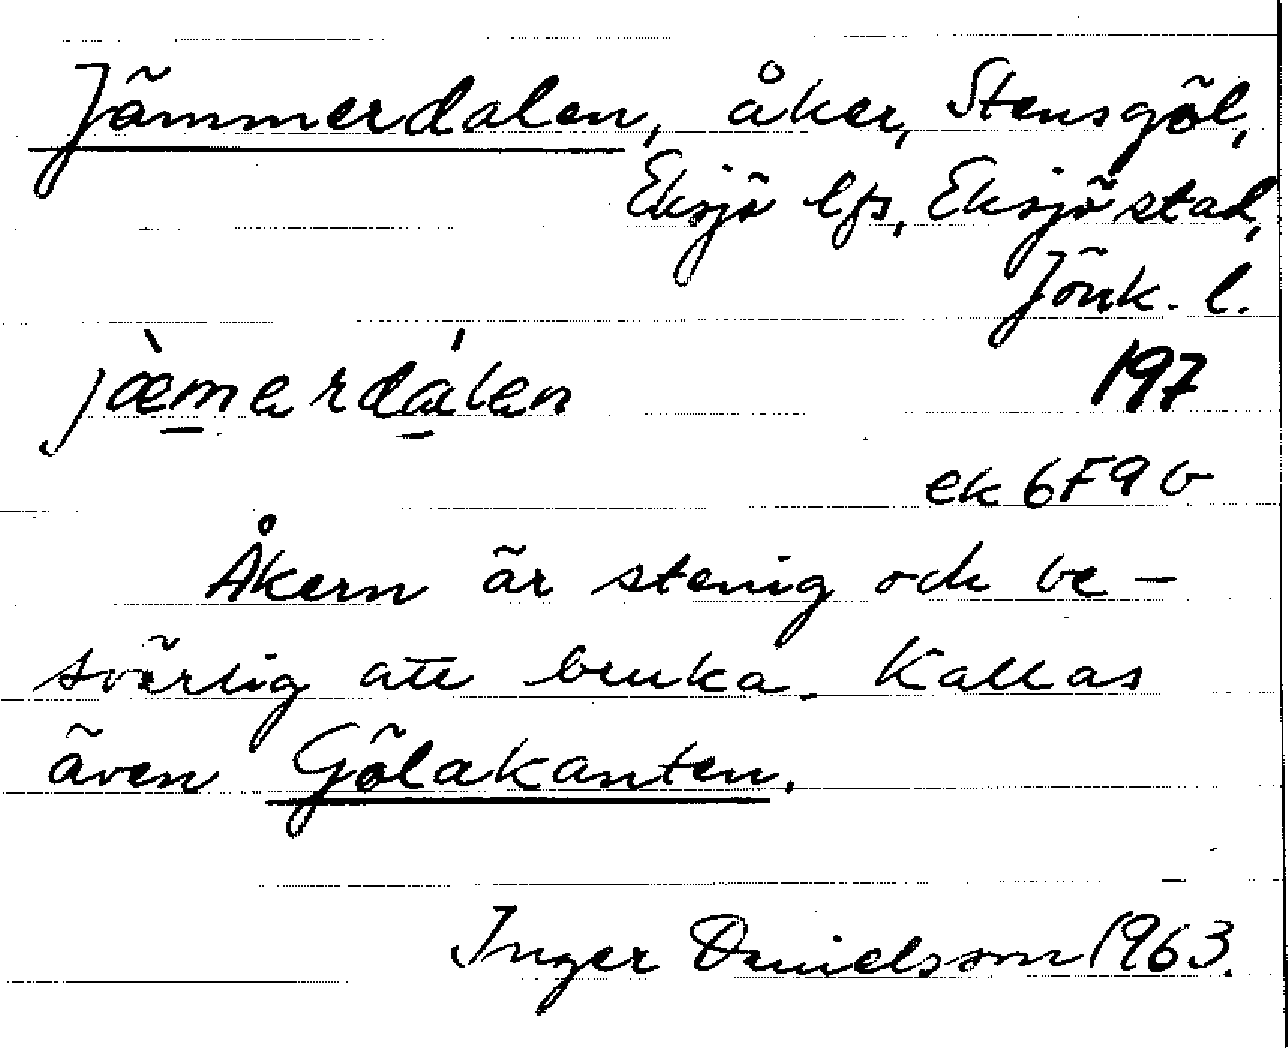 Jämmerdalen, åker, Stensgöl,
Eksjö lfs, Eksjö stad,
Jönk. l.
jæ̀mərdálən 197
ek 6F9b
Åkern är stenig och be-
svärlig att bruka. Kallas
även Gölakanten.
Inger Danielsson 1963.